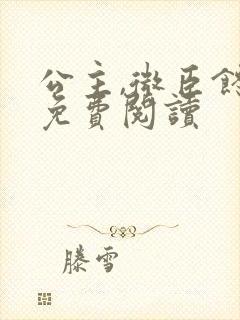 公主,微臣
免費閱讀
滕雪